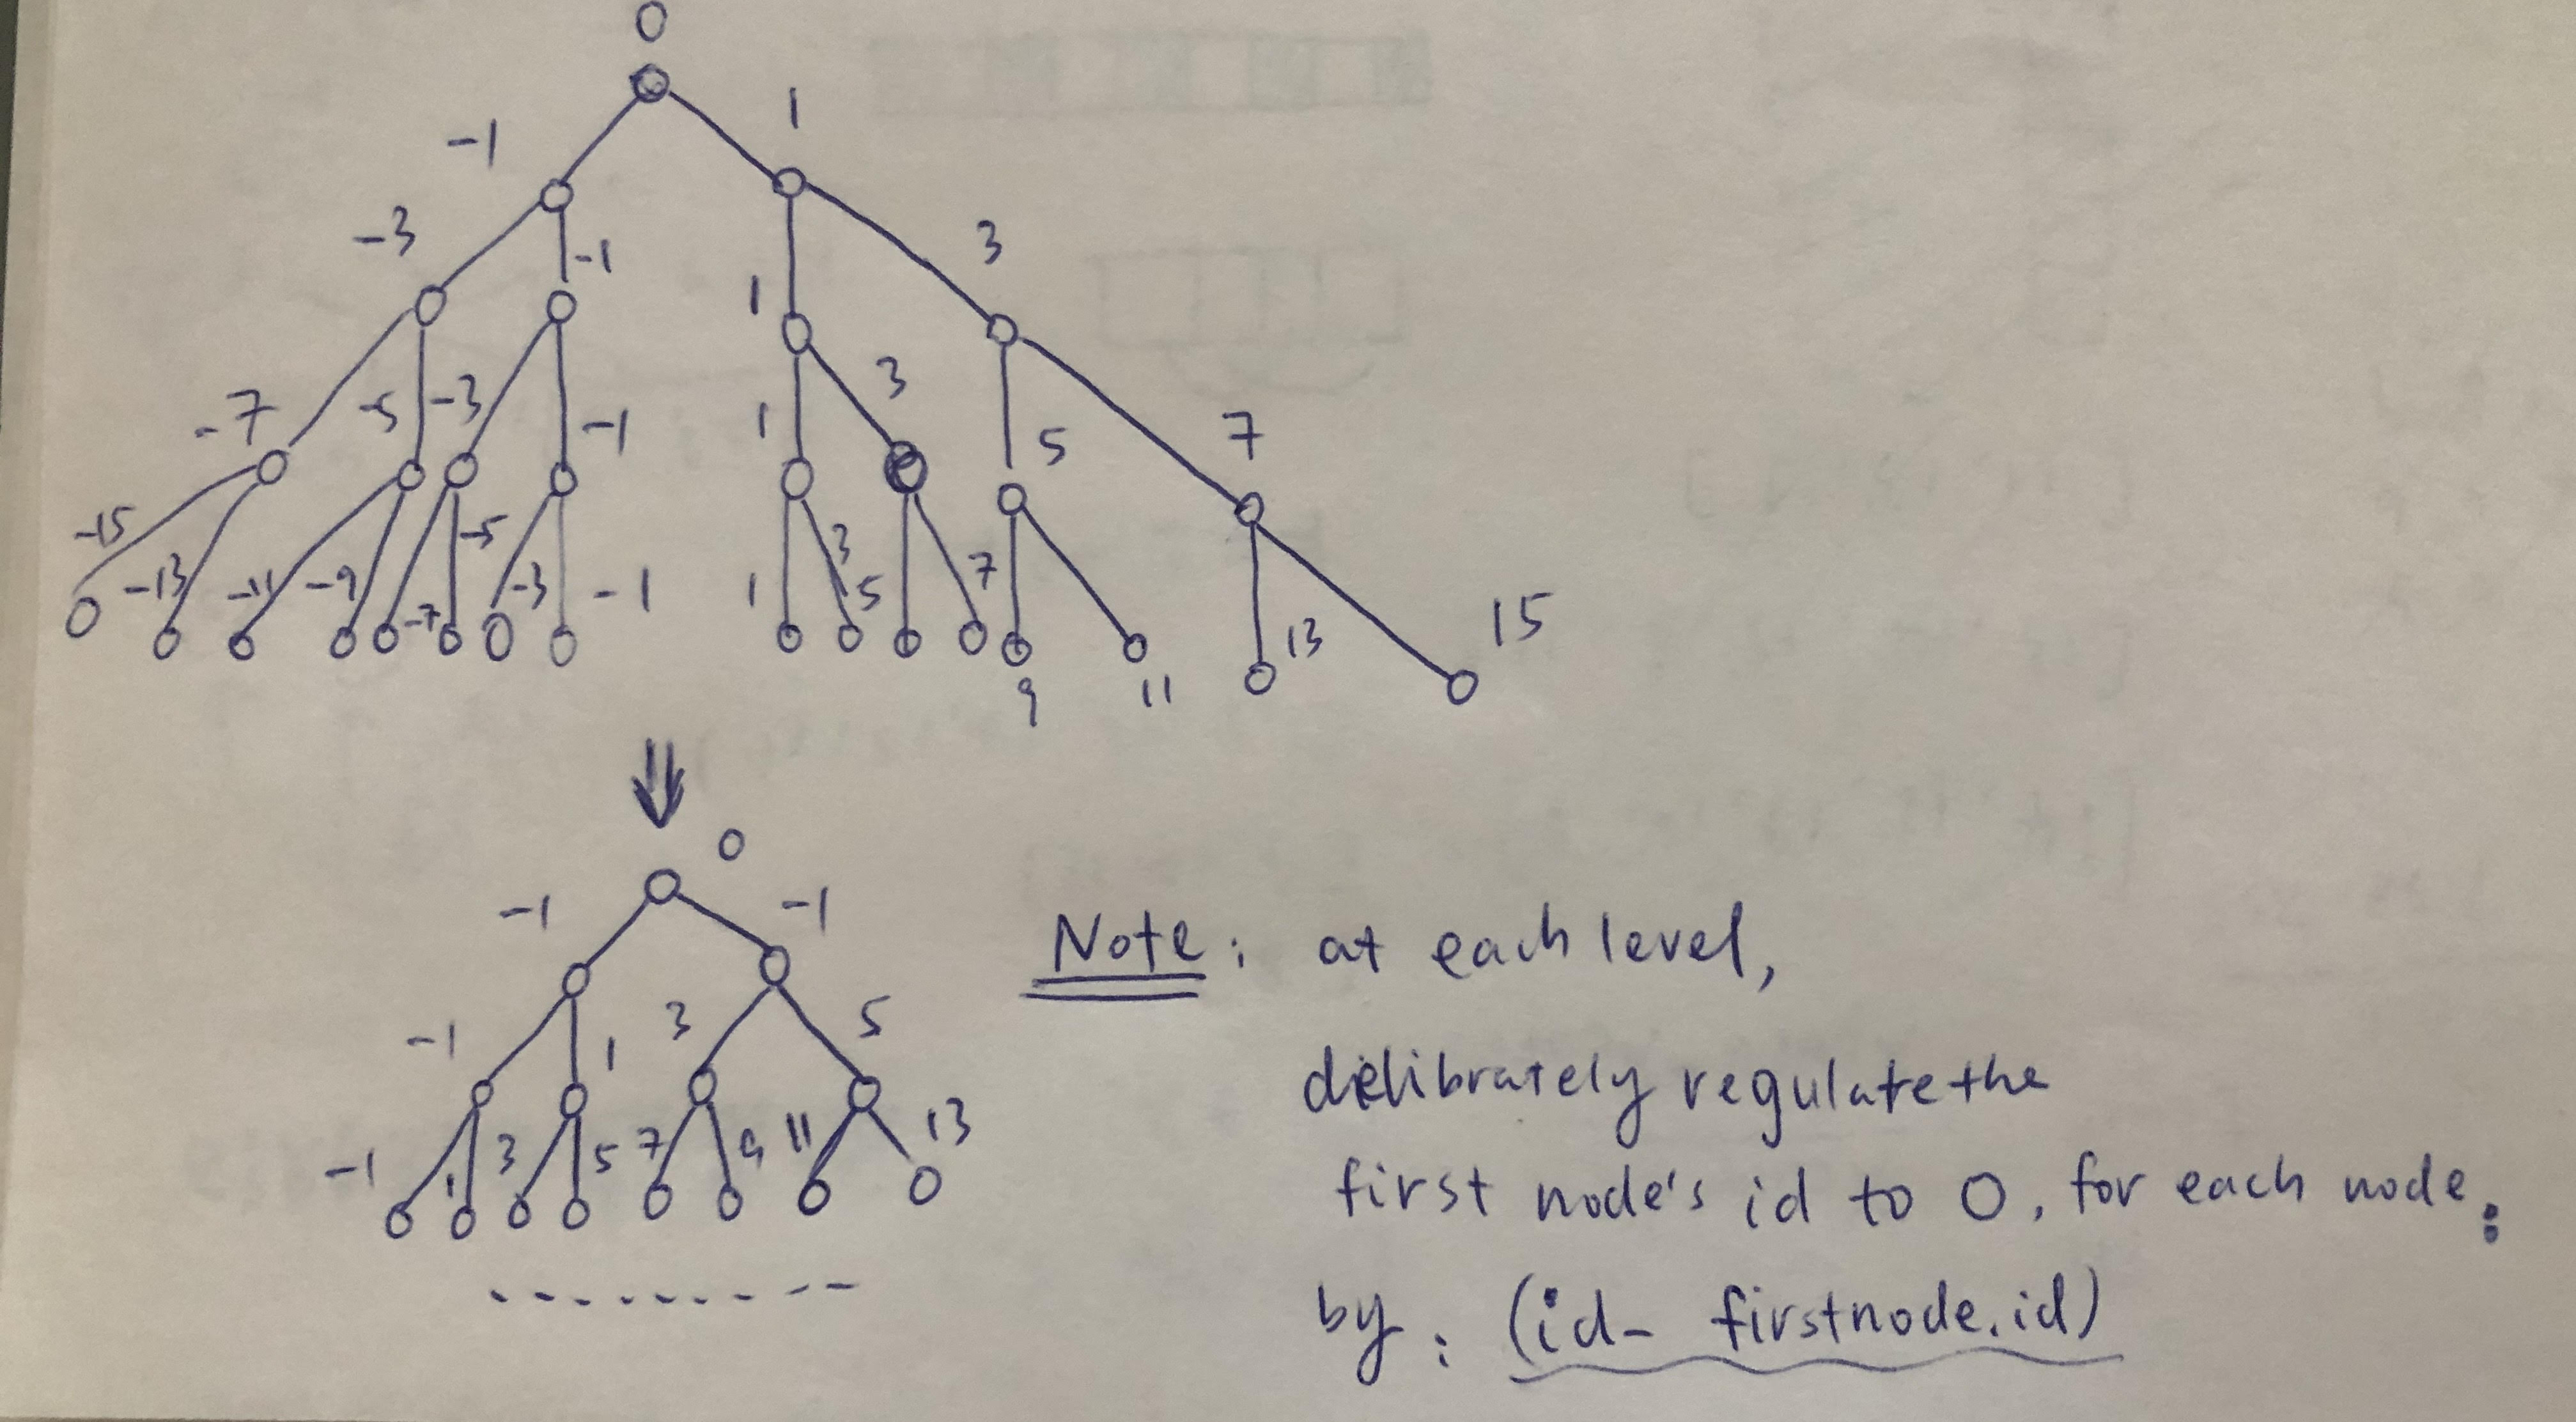 0
-1 1
-3 -1 1 3
-7 -5 -3 -1 1 3 5 7
-15 -13 -11 -9 -7 -5 -3 -1 1 3 5 7 9 11 13 15
0
-1 -1
-1 1 3 5
-1 1 3 5 7 9 11 13
Note: at each level,
delibrately regulate the
first node's id to 0, for each node:
by: (id- firstnode.id)